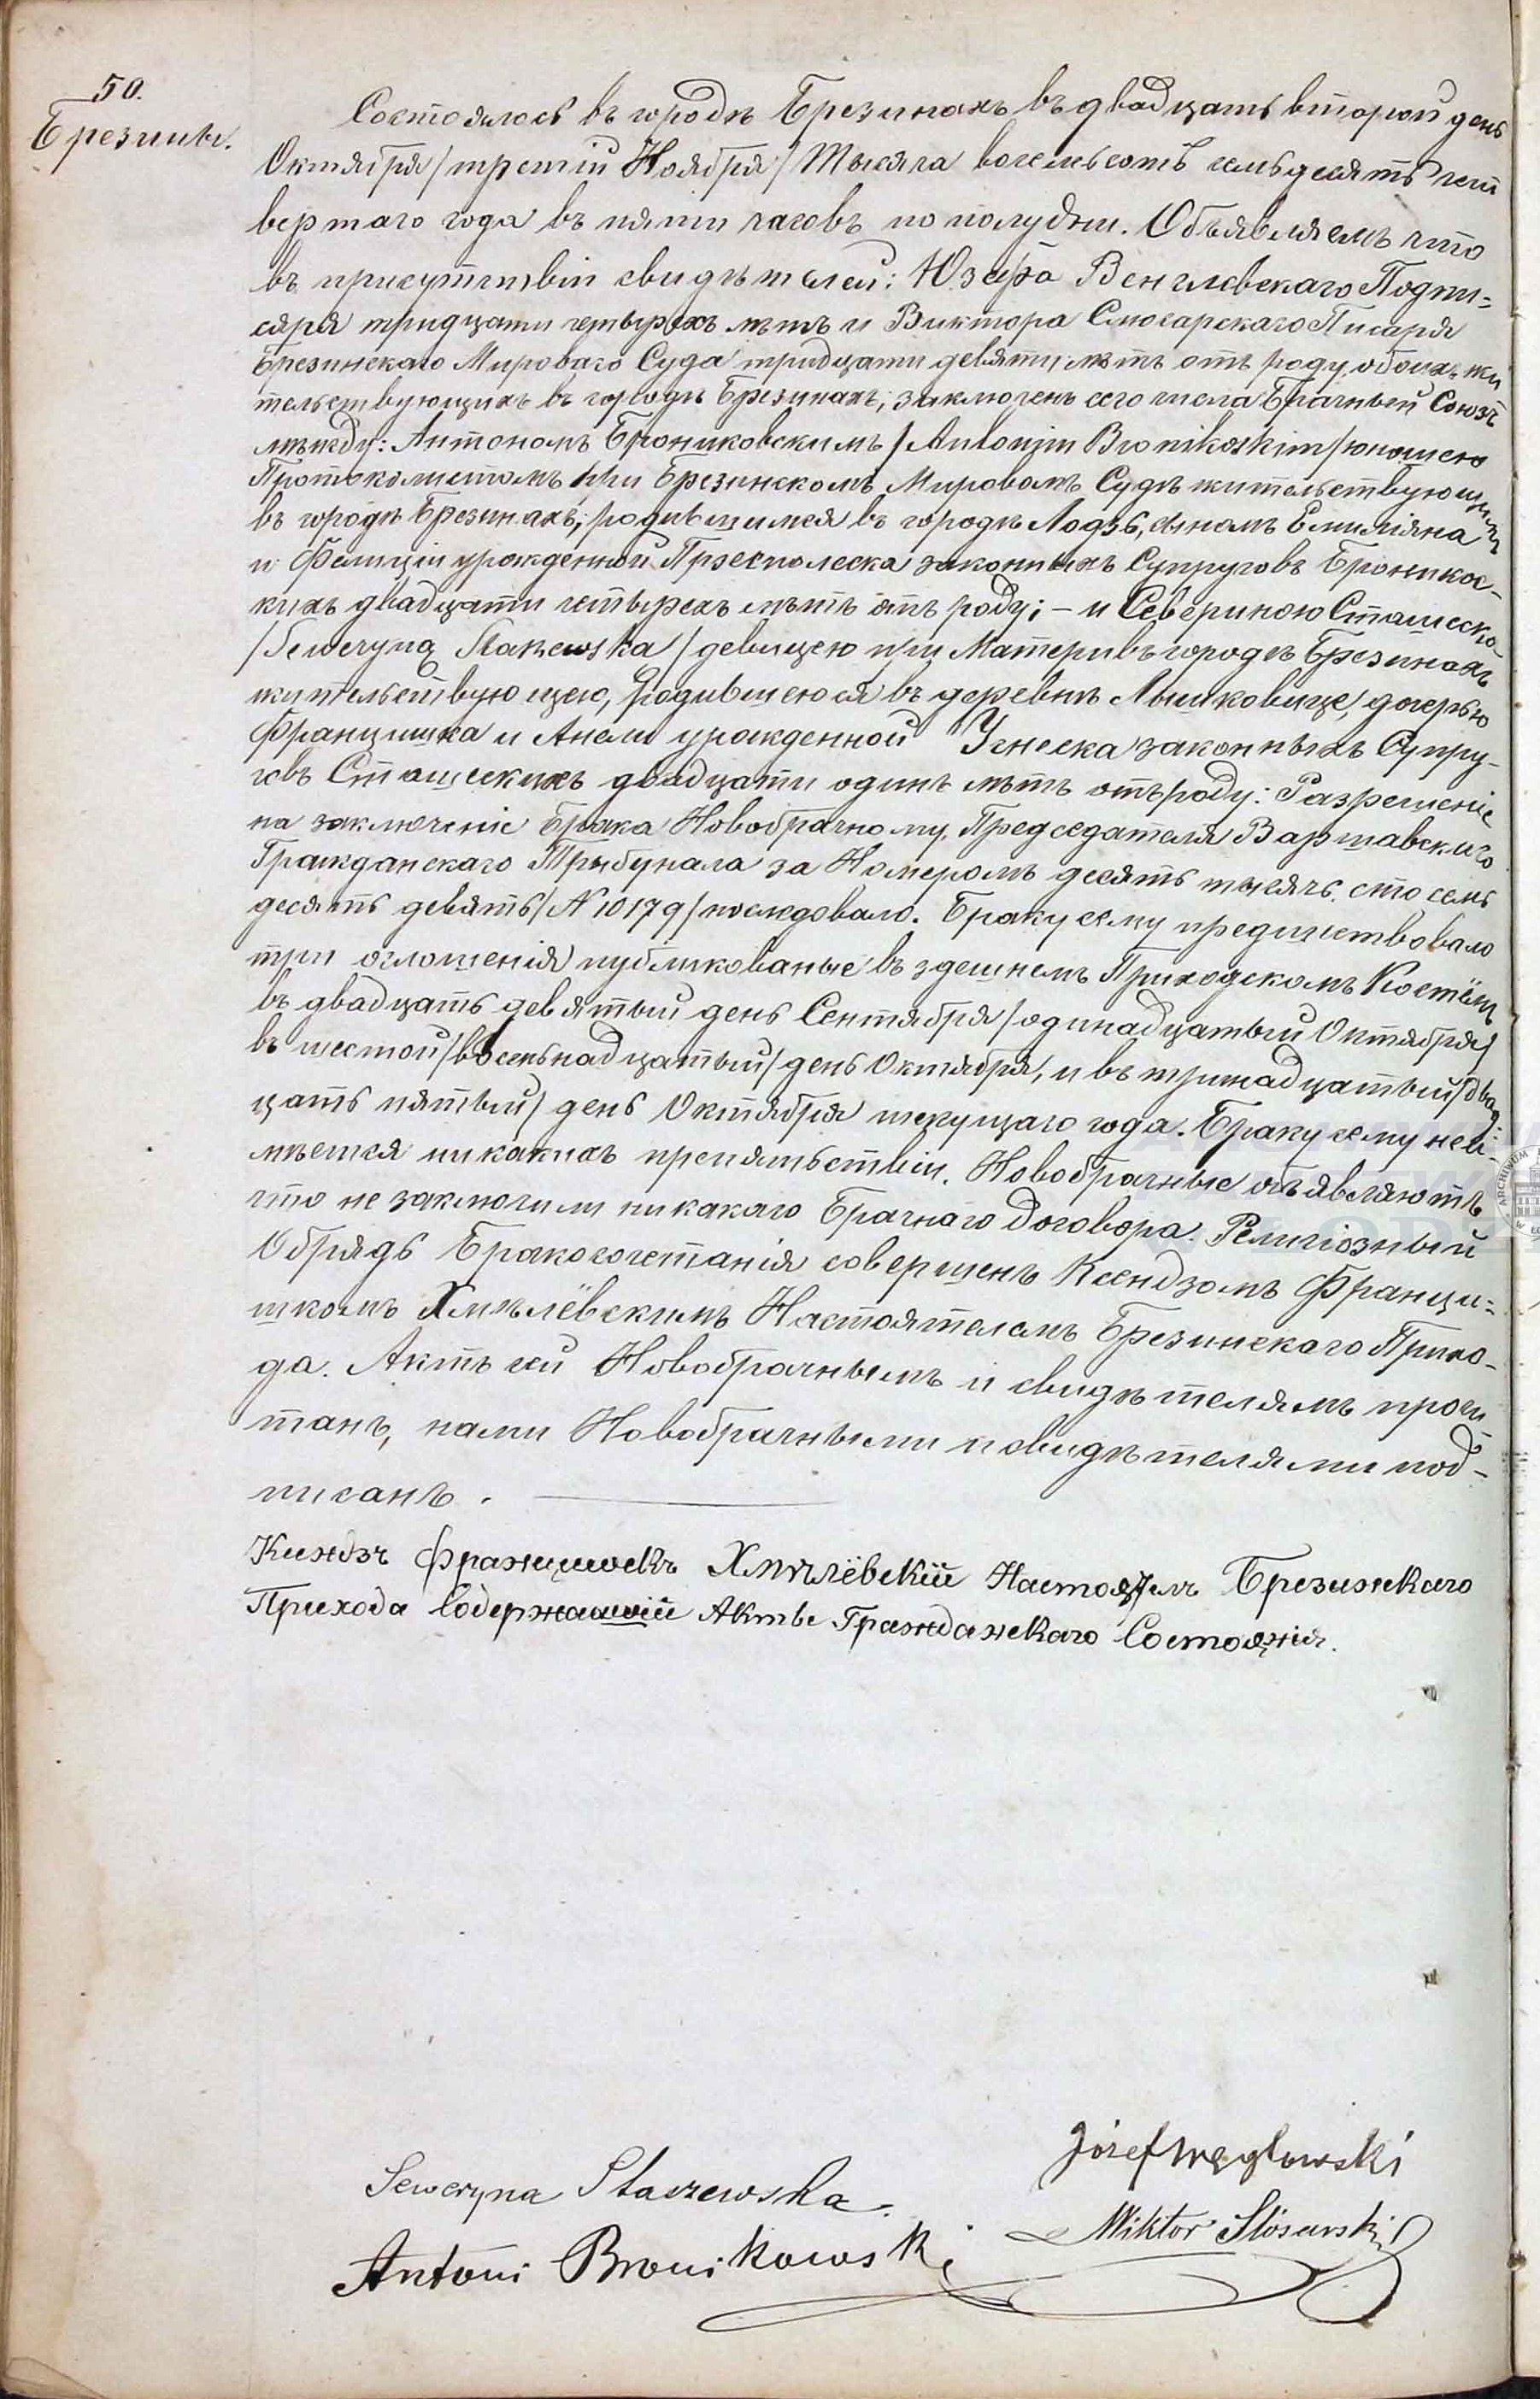 50.
Брезины.
Состоялось въ городѣ Брезинахъ въ двадцать второй день
Октября /третій Ноября/ Тысяча восемьсотъ семьдесятъ чет
вертаго года въ пяти часовъ по полудни. Объявляемъ что
въ присутствіи свидѣтелей: Юзефа Венглевскаго Подпи=
саря тридцати четырехъ лѣтъ и Виктора Слюсарскаго Писаря
Брезинскаго Мироваго Суда тридцати девяти лѣтъ отъ роду, обоихъ жи
тельствующихъ въ городѣ Брезинахъ; заключенъ сего числа Брачный Союзъ
между: Антономъ Брониковскимъ /Antonim Bronikoskim/ юношею
Протоколистомъ при Брезинскомъ Мировомъ Судѣ жительствующимъ
въ городѣ Брезинахъ; родившимся въ городѣ Лодзь, сыномъ Емиліяна
и Фелиціи урожденной Пржесполеска законныхъ Супруговъ Броникос-
кихъ двадцати четырехъ лѣтъ отъ роду; – и Севериною Сташеско-
/Seweryną Staszewska/ девицею при Матери въ городѣ Брезинахъ
жительствующею, родившеюся въ деревнѣ Лышковице, дочерью
Францишка и Анели урожденной Угнеска законныхъ Супру-
говъ Сташескихъ двадцати одинъ лѣтъ отъ роду: Разрешеніе
на заключеніе Брака Новобрачному, Председателя Варшавскаго
Гражданскаго Трыбунала за Номеромъ десять тысячъ сто семь
десятъ девять /N 10179/ последовало. Браку сему предшествовало
три оглошенія публикованые въ здешнемъ Приходскомъ Костёлѣ
въ двадцать девятый день Сентября /одинадцатый Октября/
въ шестой /восемьнадцатый/ день Октября, и въ тринадцатый /двад:
цать пятый/ день Октября текущаго года. Браку сему неи-
мѣется никакихъ препятьствіи. Новобрачные объявляютъ
что не заключили никакаго Брачнаго Договора. Религіозный
Обрядъ Бракосочетанія совершенъ Ксендзомъ Франци=
шкомъ Хмѣлёвскимъ Настоятелемъ Брезинскаго Прихо-
да. Актъ сей Новобрачнымъ и свидѣтелямъ прочи
танъ, нами Новобрачными и свидѣтелями под-
писанъ.
Ксіондзъ Францишекъ Хмѣлёвскій Настоятель Брезинскаго
Прихода Содержащій Акты Гражданскаго Состоянія.
Józef Węglowski
Seweryna Staszewska.
Wiktor Slósarski
Antoni Bronikowski